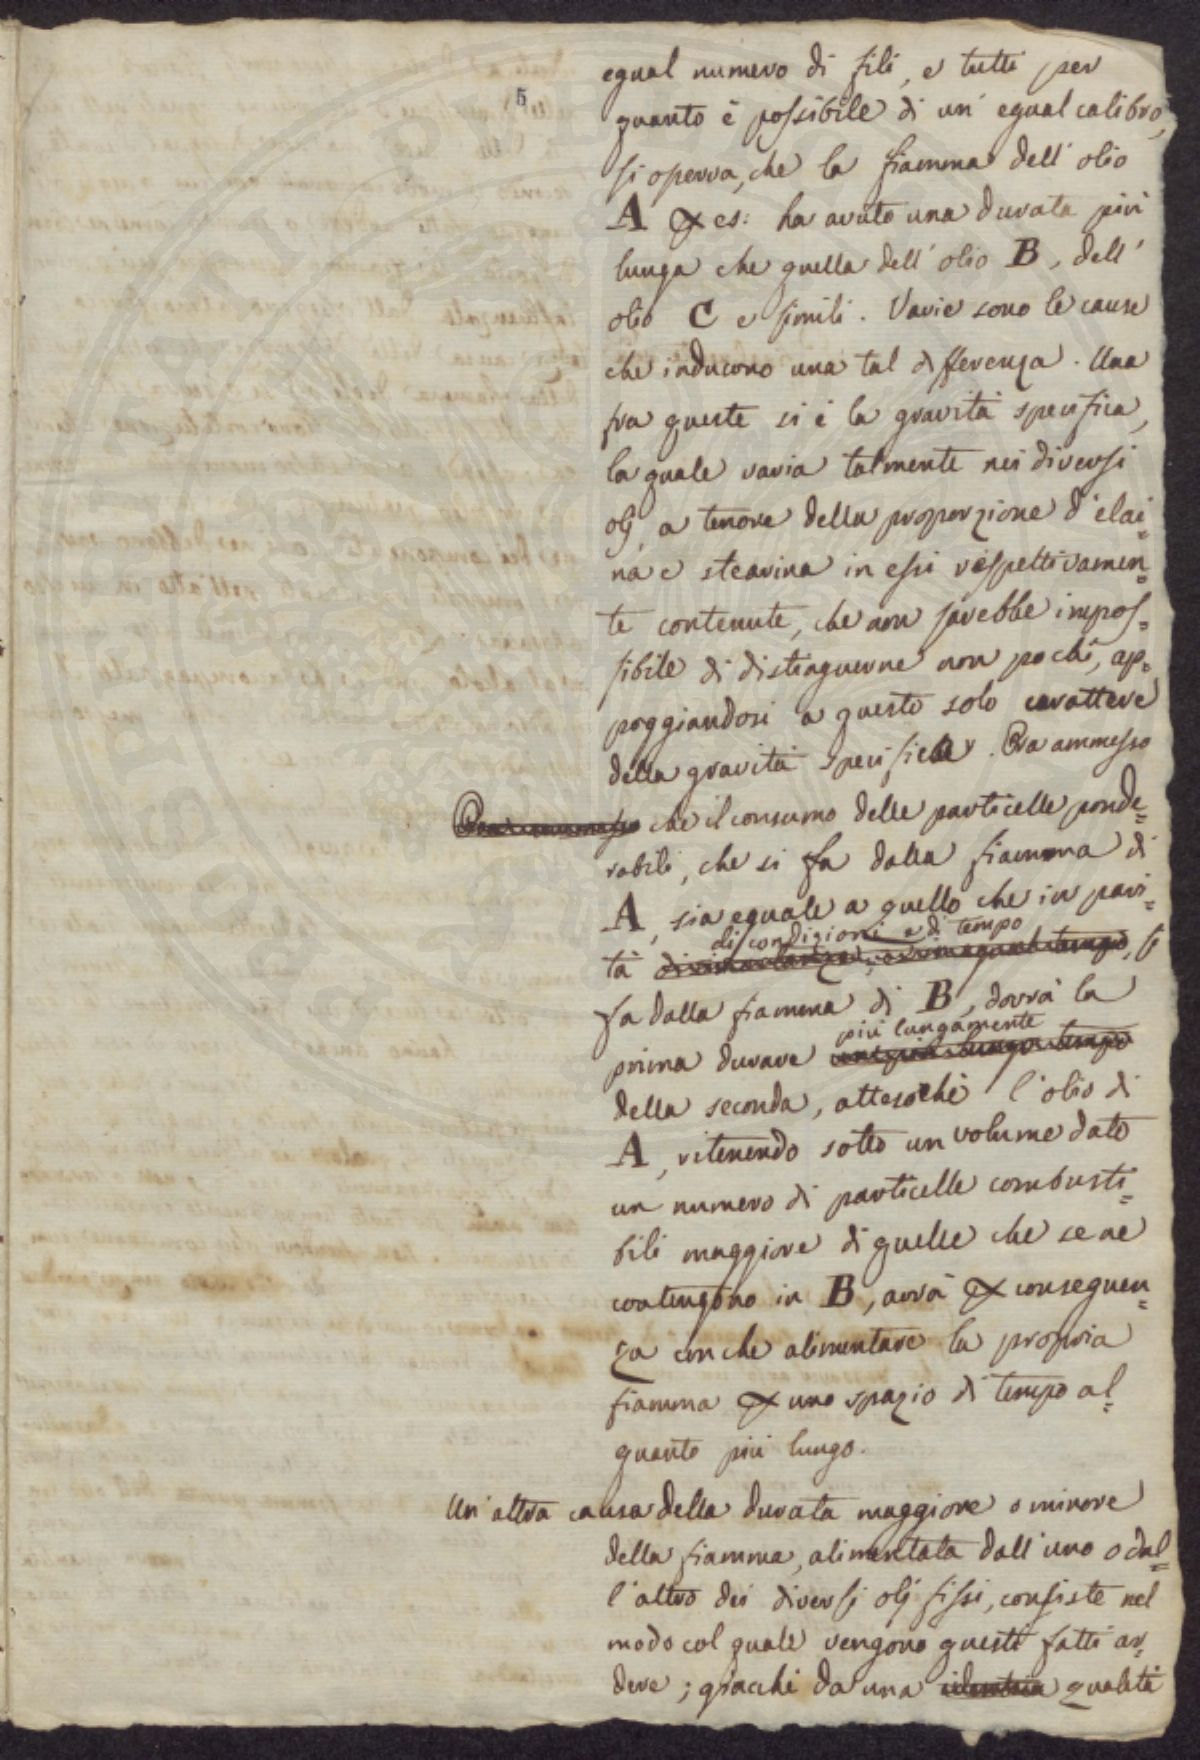 5
egual numero di fili, e tutti per
quanto è possibile di un' egual calibro,
si operva, che la fiamma dell' olio
A per es: ha avuto una durata più
lunga che quella dell' olio B, dell'
olio C e simili. Varie sono le cause
che inducono una tal differenza. Una
fra queste si è la gravità specifica,
la quale varia talmente nei diversi
olj, a tenore della proporzione d'elai=
na e stearina in essi respettivamen=
te contenute, che non sarebbe impos=
sibile di distinguerne non pochi, ap=
poggiandosi a questo solo carattere
della gravità specifica. Ora ammesso
Ora ammesso che il consumo delle particelle ponde=
rabili, che si fa dalla fiamma di
A, sia eguale a quello che in pari=
di condizioni e di tempo
tà, si
fa dalla fiamma di B, dovrà la
più lungamente
prima durare un più lungo tempo
della seconda, attesochè l'olio di
A, ritenendo sotto un volume dato
un numero di particelle combusti=
bili maggiore di quelle che se ne
contengono in B, avrà per conseguen=
za con che alimentare la propria
fiamma per uno spazio di tempo al=
quanto più lungo.
Un' altra causa della durata maggiore o minore
della fiamma, alimentata dall'uno o dal=
l'altro dei diversi olj fissi, consiste nel
modo col quale vengono questi fatti ar=
dere; giacchè da una identica qualità